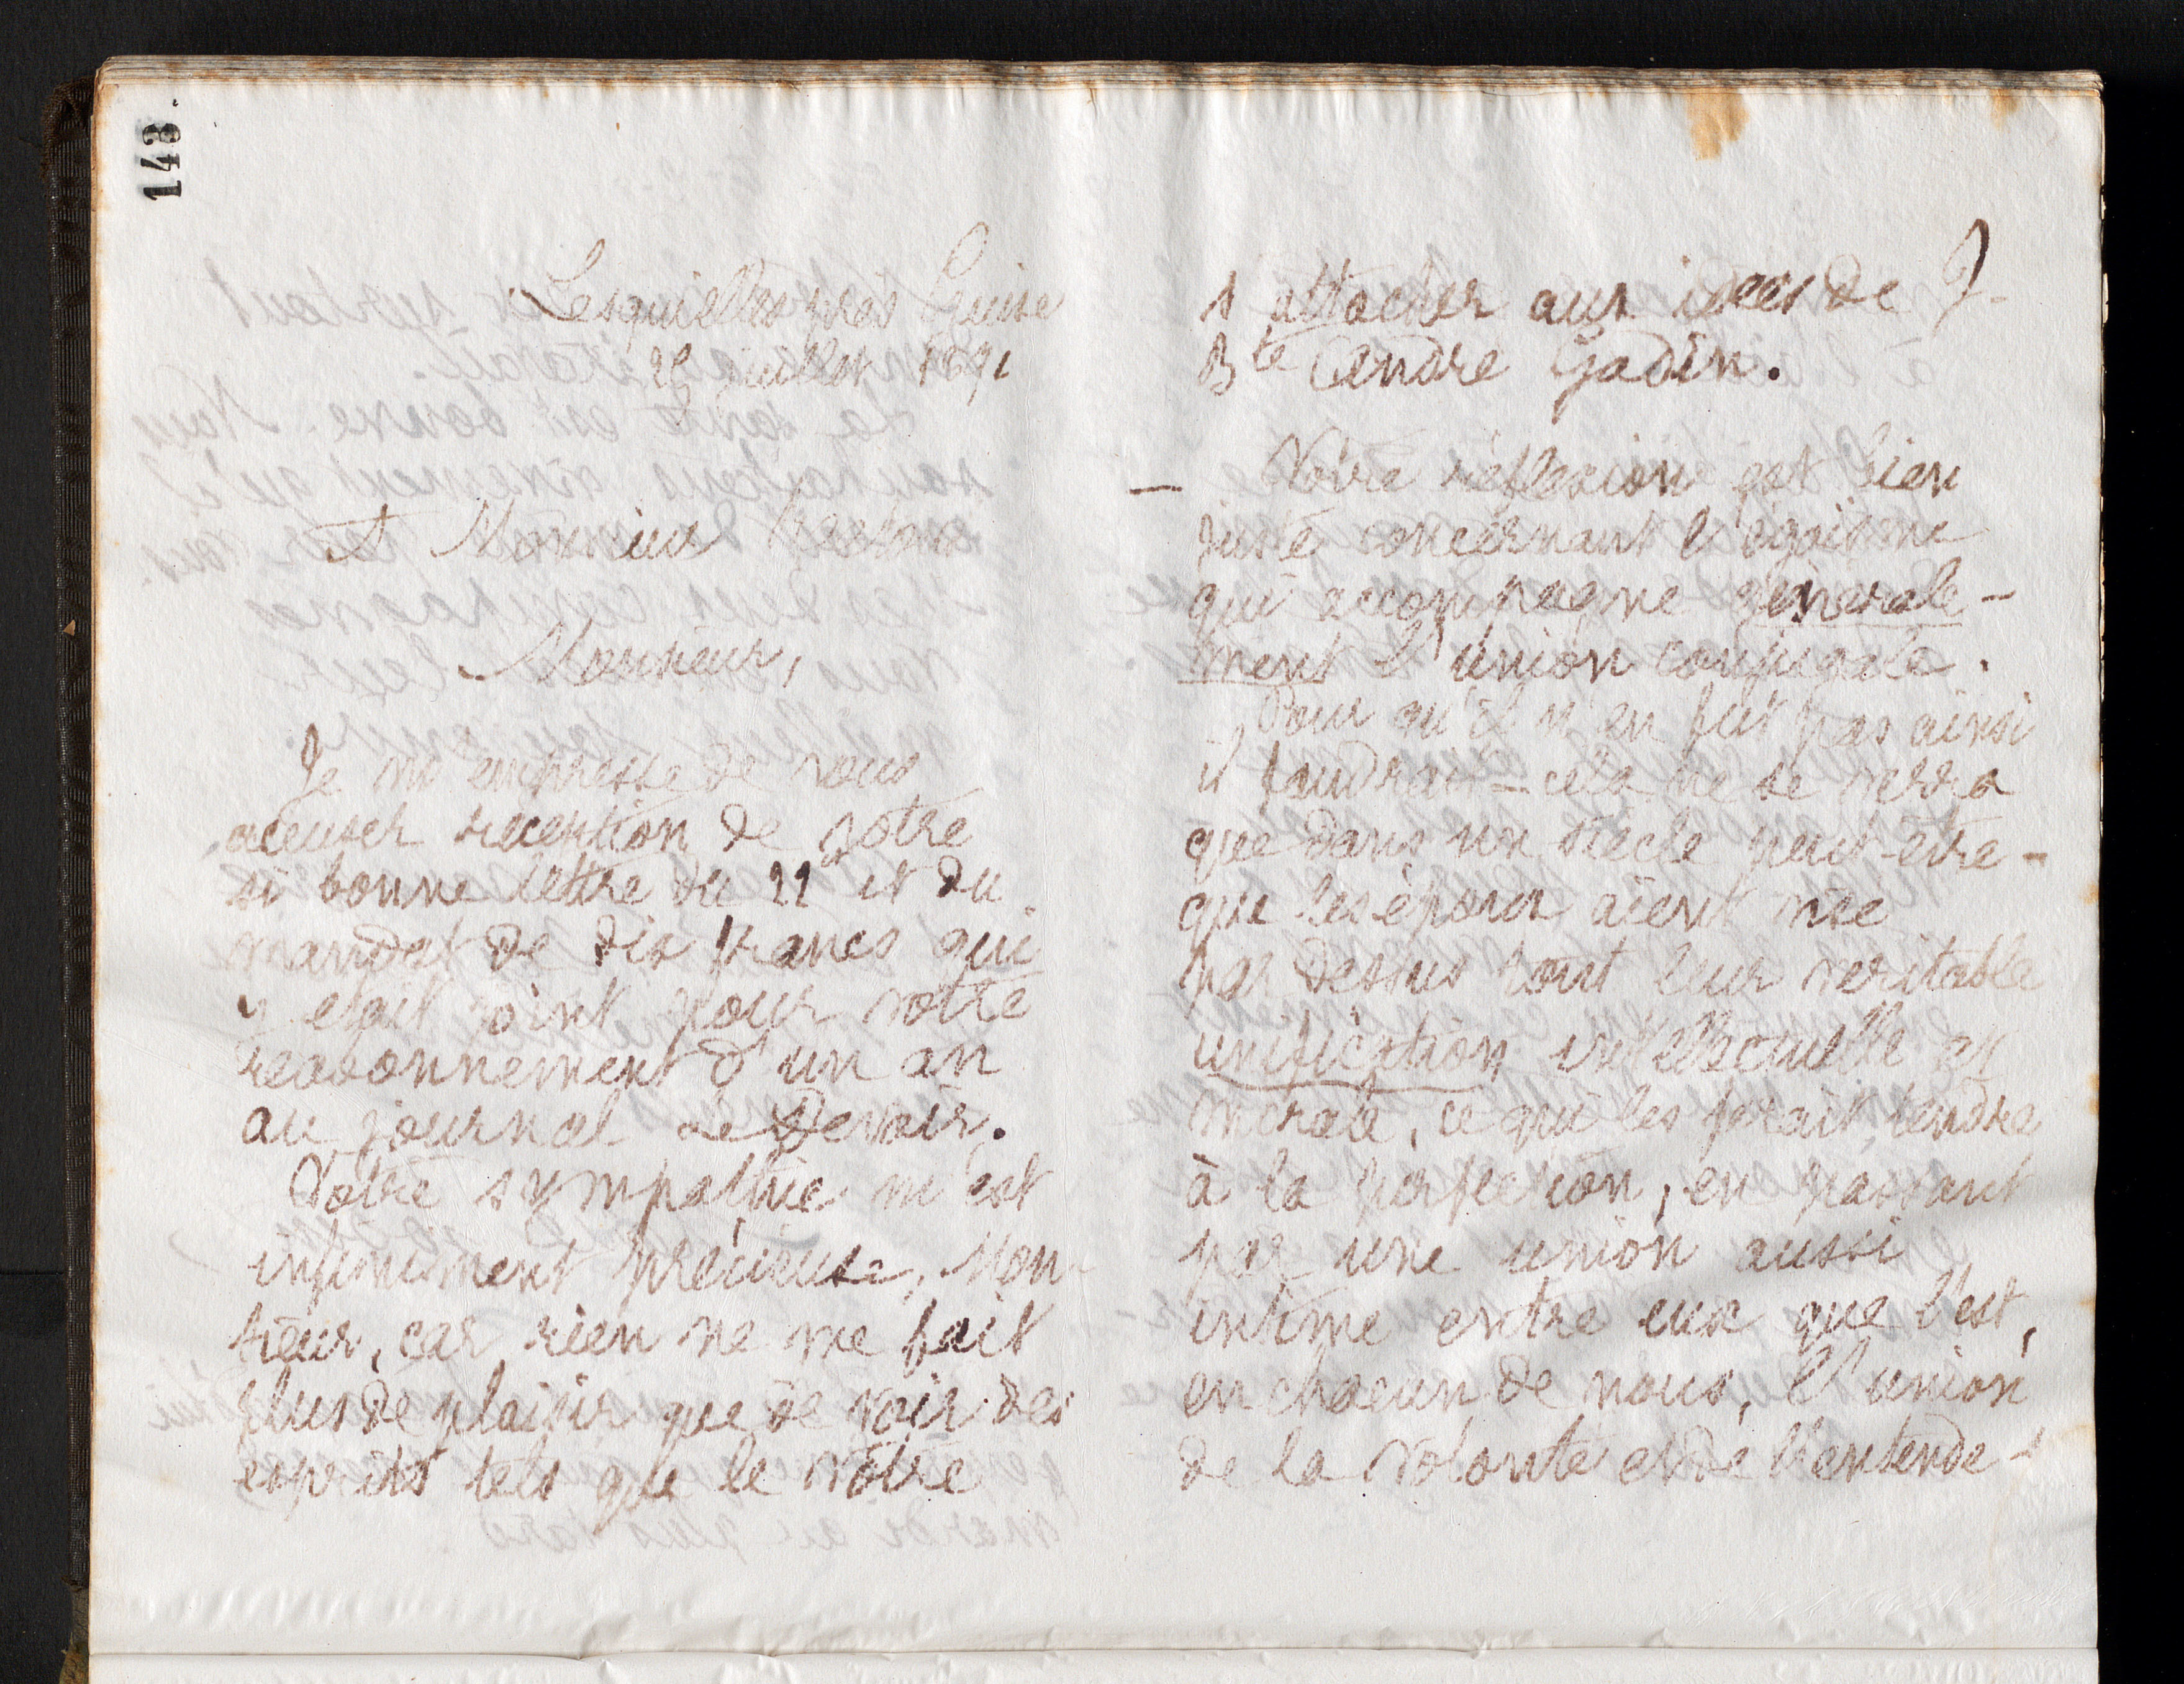 143
Lesquielles près Guise
25 juillet 1891
A Monsieur
Monsieur,
Je m'empresse de vous
accuser réception de votre
si bonne lettre du 22 et du
mandat de dix francs qui
y était joint pour votre
réabonnement d'un an
au journal Le Devoir.
Votre sympathie m'est
infiniment précieuse, Mon-
sieur, car rien ne me fait
plus de plaisir que de voir des
esprits tels que le vôtre
s'attacher aux idées de J-
Bte André Godin.
Votre réflexion est bien
juste concernant l'égoïsme
qui accompagne générale-
ment l'union conjugale.
Pour qu'il n'en fut pas ainsi
il faudrait - cela ne se verra
que dans un siècle peut-être -
que les époux aient visé
par dessus tout leur véritable
unification intellectuelle et
morale, ce qui les ferait tendre
à la perfection, en passant
par une union aussi
intime entre eux que l'est,
en chacun de nous, l'union
de la volonté et de l'entende-